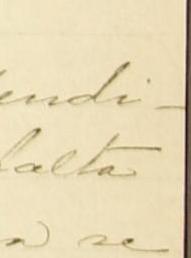 endi-
falta
a se